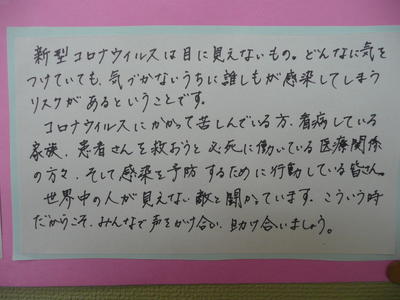 新型コロナウィルスは目に見えないもの。どんなに気を
つけていても、気づかないうちに誰しもが感染してしまう
リスクがあるということです。
コロナウィルスにかかって苦しんでいる方、看病している
家族、患者さんを救おうと必死に働いている医療関係
の方々、そして感染を予防するために行動している皆さん。
世界中の人が見えない敵と闘っています。こういう時
だからこそ、みんなで声をかけ合い、助け合いましょう。